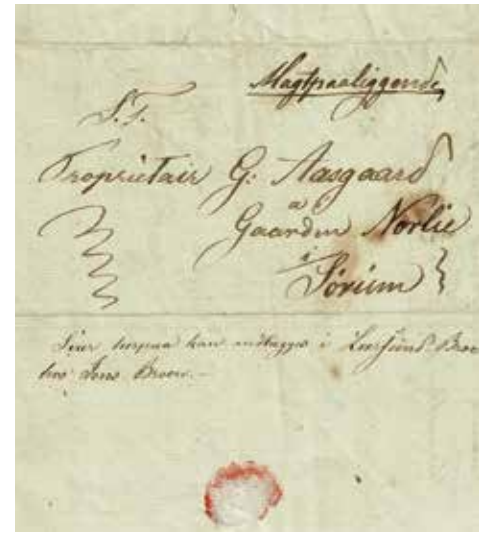 Magtpaaliggende
S.T.
Proprietair G: Aasgaard
a
Gaarden Norlie
i
Sørum
Svar herpaa kan indlægges i Leersund Broe
hos Jens Broen.